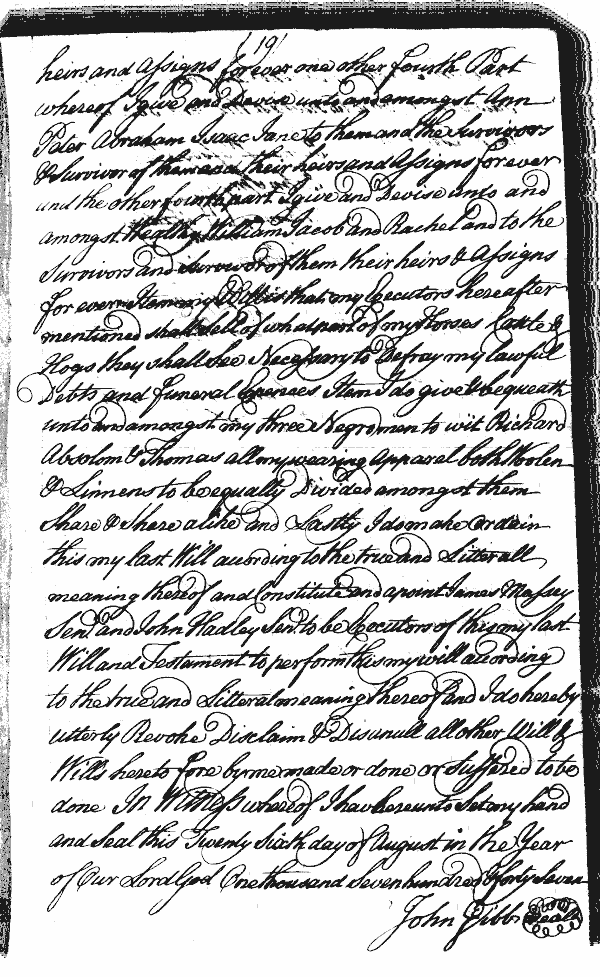 (19)
heirs and Assigns forever one other fourth Part
whereof I give and Devise unto and amongst Ann
Peter Abraham Isaac Jane to them and the Survivors
& Survivor of them and their heirs and Assigns forever
and the other fourth part I give and Devise unto and
amongst William Jacob and Rachel and to the
Survivors and Survivor of them their heirs & Assigns
for ever Item my Will is that my Executors hereafter
mentioned shall sell of what part of my Horses Cattle &
Hogs they shall See Necessary to Defray my lawful
Debts and funeral Expences Item I do give & bequeath
unto and amongst my three Negro men to wit Richard
Absolom & Thomas all my wearing Apparel both Woolen
& Linnens to be equally Divided amongst them
Share & Share alike and Lastly I do make Ordain
this my last Will according to the true and Litterall
meaning thereof and Constitute and apoint James Massey
Senr. and John Hadley Senr. to be Executors of this my last
Will and Testament to perform this my will according
to the true and Litteral meaning thereof and I do hereby
utterly Revoke Disclaim & Disanull all other Will &
Wills hereto fore by me made or done or Suffered to be
done In Witness whereof I have hereunto Set my hand
and Seal this Twenty Sixth day of August in the Year
of Our Lord God One thousand Seven hundred & forty Seven
John Gibbs Seale